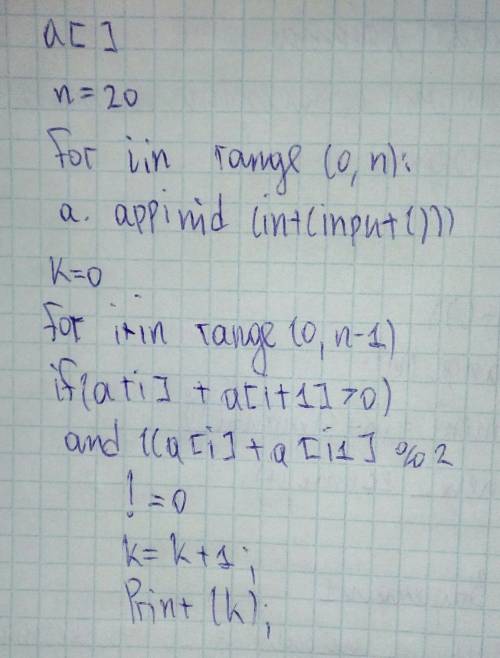 a[]
n=20
For i in range (0, n):
a. appinid (int(input()))
k=0
For i in range (0, n-1)
if(a[i] + a[i+1]>0)
and ((a[i]+a[i1] %2
!=0
k=k+1;
Print (k);